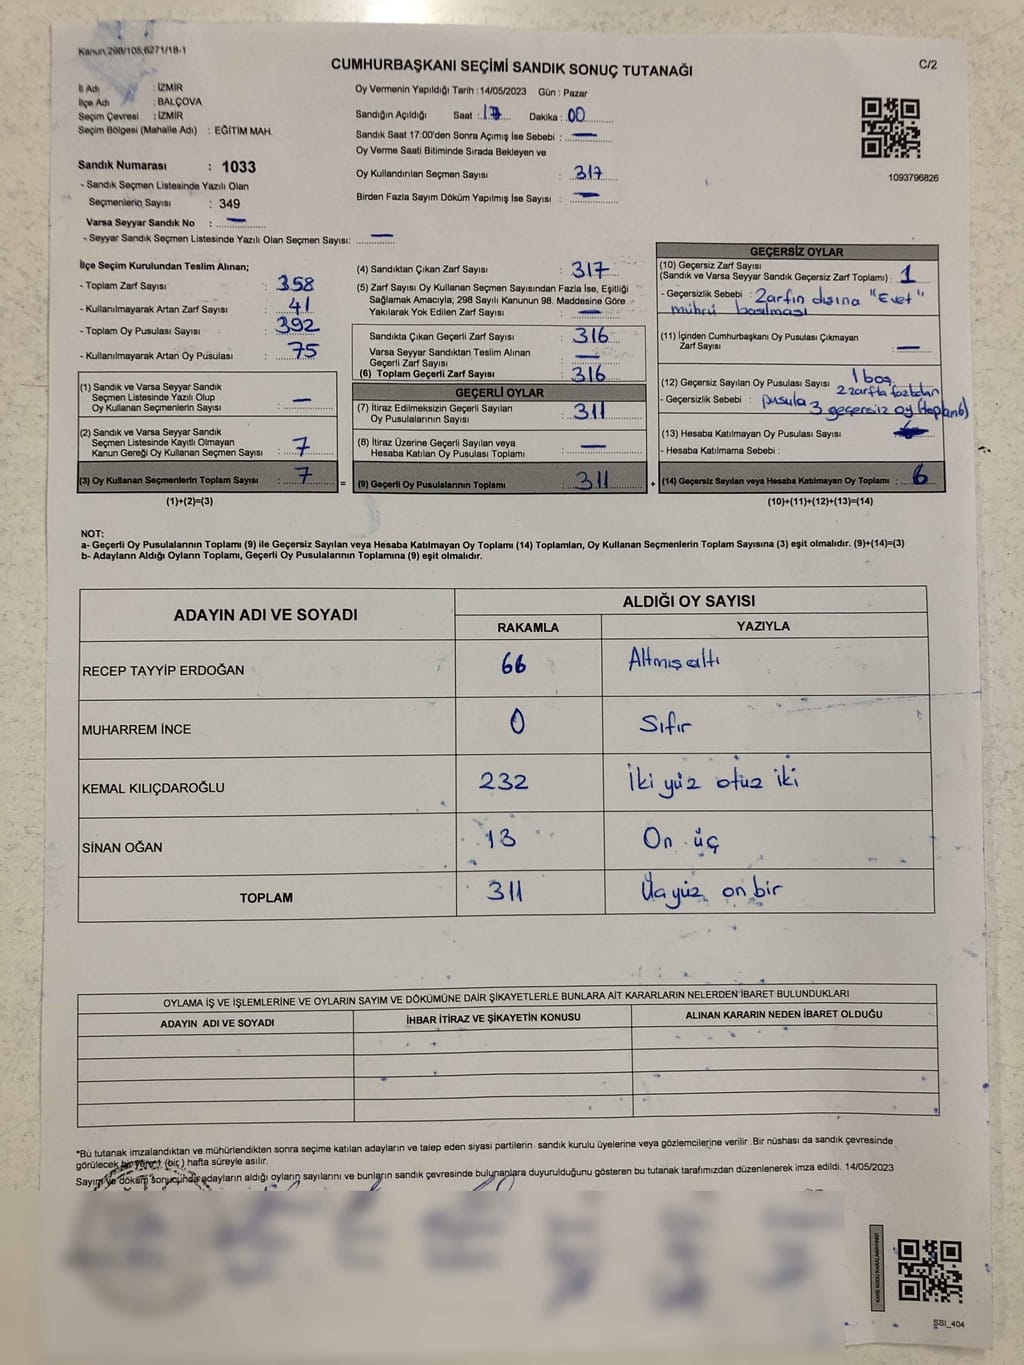 Kanun,298/105,6271/18-1
CUMHURBAŞKANI SEÇİMİ SANDIK SONUÇ TUTANAĞI
C/2
İl Adı : İZMİR
İlçe Adı : BALÇOVA
Seçim Çevresi : İZMİR
Seçim Bölgesi (Mahalle Adı) : EĞİTİM MAH.
Sandık Numarası : 1033
- Sandık Seçmen Listesinde Yazılı Olan
Seçmenlerin Sayısı : 349
Varsa Seyyar Sandık No : —
- Seyyar Sandık Seçmen Listesinde Yazılı Olan Seçmen Sayısı: —
Oy Vermenin Yapıldığı Tarih : 14/05/2023 Gün : Pazar
Sandığın Açıldığı Saat : 17 Dakika : 00
Sandık Saat 17:00'den Sonra Açımış İse Sebebi : —
Oy Verme Saati Bitiminde Sırada Bekleyen ve
Oy Kullandırılan Seçmen Sayısı : 317
Birden Fazla Sayım Döküm Yapılmış İse Sayısı : —
1093796826
İlçe Seçim Kurulundan Teslim Alınan;
- Toplam Zarf Sayısı : 358
- Kullanılmayarak Artan Zarf Sayısı : 41
- Toplam Oy Pusulası Sayısı : 392
- Kullanılmayarak Artan Oy Pusulası : 75
(1) Sandık ve Varsa Seyyar Sandık
Seçmen Listesinde Yazılı Olup
Oy Kullanan Seçmenlerin Sayısı : —
(2) Sandık ve Varsa Seyyar Sandık
Seçmen Listesinde Kayıtlı Olmayan
Kanun Gereği Oy Kullanan Seçmen Sayısı : 7
(3) Oy Kullanan Seçmenlerin Toplam Sayısı : 7
(1)+(2)=(3)
(4) Sandıktan Çıkan Zarf Sayısı : 317
(5) Zarf Sayısı Oy Kullanan Seçmen Sayısından Fazla İse, Eşitliği
Sağlamak Amacıyla; 298 Sayılı Kanunun 98. Maddesine Göre
Yakılarak Yok Edilen Zarf Sayısı : —
Sandıkta Çıkan Geçerli Zarf Sayısı : 316
Varsa Seyyar Sandıktan Teslim Alınan
Geçerli Zarf Sayısı : —
(6) Toplam Geçerli Zarf Sayısı : 316
GEÇERLİ OYLAR
(7) İtiraz Edilmeksizin Geçerli Sayılan
Oy Pusulalarının Sayısı : 311
(8) İtiraz Üzerine Geçerli Sayılan veya
Hesaba Katılan Oy Pusulası Toplamı : —
= (9) Geçerli Oy Pusulalarının Toplamı : 311 +
GEÇERSİZ OYLAR
(10) Geçersiz Zarf Sayısı
(Sandık ve Varsa Seyyar Sandık Geçersiz Zarf Toplamı) : 1
- Geçersizlik Sebebi : Zarfın dışına "Evet"
mührü basılması
(11) İçinden Cumhurbaşkanı Oy Pusulası Çıkmayan
Zarf Sayısı : —
(12) Geçersiz Sayılan Oy Pusulası Sayısı : 1 boş
2 zarfta fazladan
- Geçersizlik Sebebi : pusula 3 geçersiz oy (toplam 6)
(13) Hesaba Katılmayan Oy Pusulası Sayısı :
- Hesaba Katılmama Sebebi :
(14) Geçersiz Sayılan veya Hesaba Katılmayan Oy Toplamı : 6
(10)+(11)+(12)+(13)=(14)
NOT:
a- Geçerli Oy Pusulalarının Toplamı (9) ile Geçersiz Sayılan veya Hesaba Katılmayan Oy Toplamı (14) Toplamları, Oy Kullanan Seçmenlerin Toplam Sayısına (3) eşit olmalıdır. (9)+(14)=(3)
b- Adayların Aldığı Oyların Toplamı, Geçerli Oy Pusulalarının Toplamına (9) eşit olmalıdır.
ADAYIN ADI VE SOYADI
ALDIĞI OY SAYISI
RAKAMLA YAZIYLA
RECEP TAYYİP ERDOĞAN 66 Altmış altı
MUHARREM İNCE 0 Sıfır
KEMAL KILIÇDAROĞLU 232 İki yüz otuz iki
SİNAN OĞAN 13 On üç
TOPLAM 311 Üçyüz on bir
OYLAMA İŞ VE İŞLEMLERİNE VE OYLARIN SAYIM VE DÖKÜMÜNE DAİR ŞİKAYETLERLE BUNLARA AİT KARARLARIN NELERDEN İBARET BULUNDUKLARI
ADAYIN ADI VE SOYADI İHBAR İTİRAZ VE ŞİKAYETİN KONUSU ALINAN KARARIN NEDEN İBARET OLDUĞU
*Bu tutanak imzalandıktan ve mühürlendikten sonra seçime katılan adayların ve talep eden siyasi partilerin sandık kurulu üyelerine veya gözlemcilerine verilir .Bir nüshası da sandık çevresinde
görülecek bir yere 1 (bir) hafta süreyle asılır.
Sayım ve döküm sonucunda adayların aldığı oyların sayılarını ve bunların sandık çevresinde bulunanlara duyurulduğunu gösteren bu tutanak tarafımızdan düzenlenerek imza edildi. 14/05/2023
SSI_404